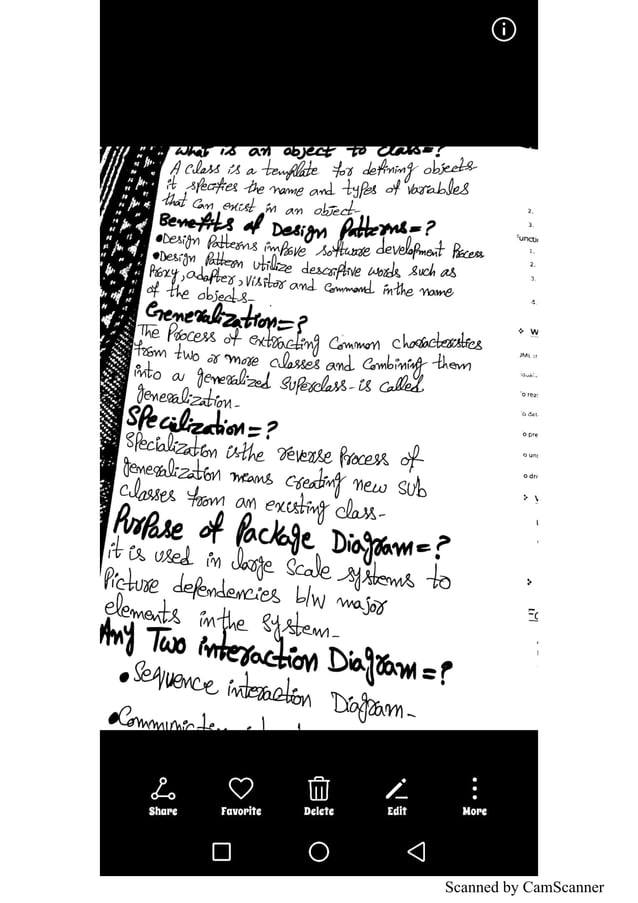 What is an object to class=?
A class is a template for defining objects
it specifies the name and types of variables
that can exist in an object-
Benefits of Design Patterns=?
•Design Patterns improve software development Process
•Design Pattern utilize descriptive words such as
Proxy, adapter, visitor and Command in the name
of the objects-
Generalization=?
The Process of extracting Common characteristics
from two or more classes and Combining them
into a generalized superclass-is called
generalization-
Specilization=?
Specialization is the reverse Process of
generalization means creating new sub
classes from an existing class-
Purpase of Package Diagram=?
it is used in large scale systems to
Picture dependencies b/w major
elements in the system-
Any Two interaction Diagram=?
•Sequence interaction Diagram-
2.
3.
1.
2.
3.
4.
Share Favorite Delete Edit More
Scanned by CamScanner